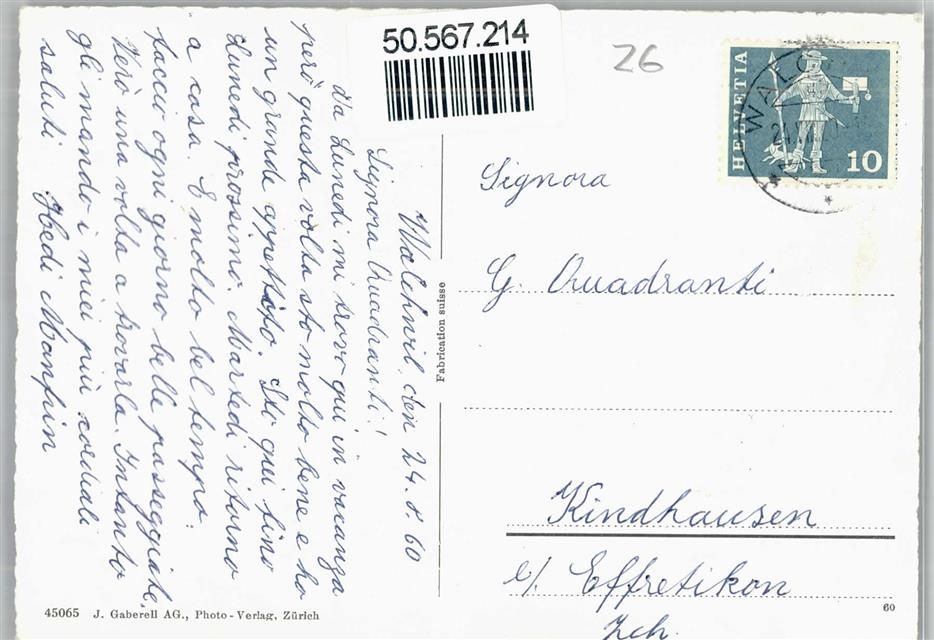 Walchwil, den 24.8.60
Signora Quadranti!
Da Lunedi mi trovo qui in vacanza
però questa volta sto molto bene e ho
un grande appetito. Sto qui fino
Lunedi prossimo. Martedi ritorno
a casa. E molto bel tempo.
faccio ogni giorno belle passeggiate.
Verò una volta a trovarla. Intanto
gli mando i miei più cordiali
saluti Hedi Manfrin
50.567.214
26
HELVETIA
10
WALC
24.VIII.60
Signora
G. Quadranti
Kindhausen
b/. Effretikon
Zch.
Fabrication suisse
45065 J. Gaberell AG., Photo-Verlag, Zürich
60